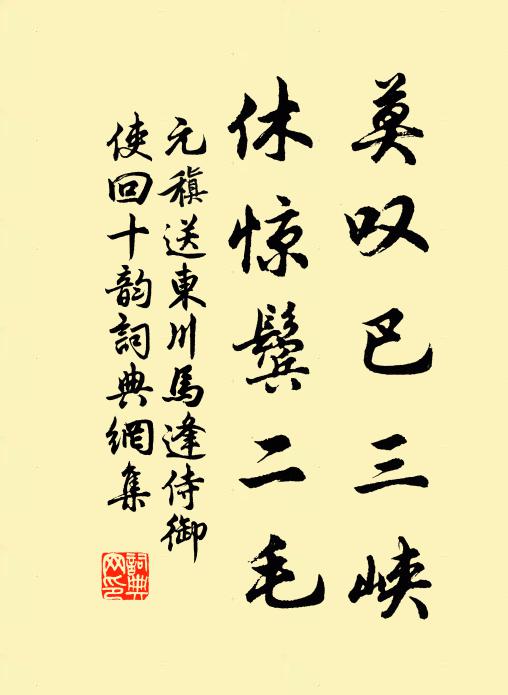 莫叹巴三峡
休惊鬓二毛
元稹送東川馬逢侍御
使回十韵詞典網集
詞典网印